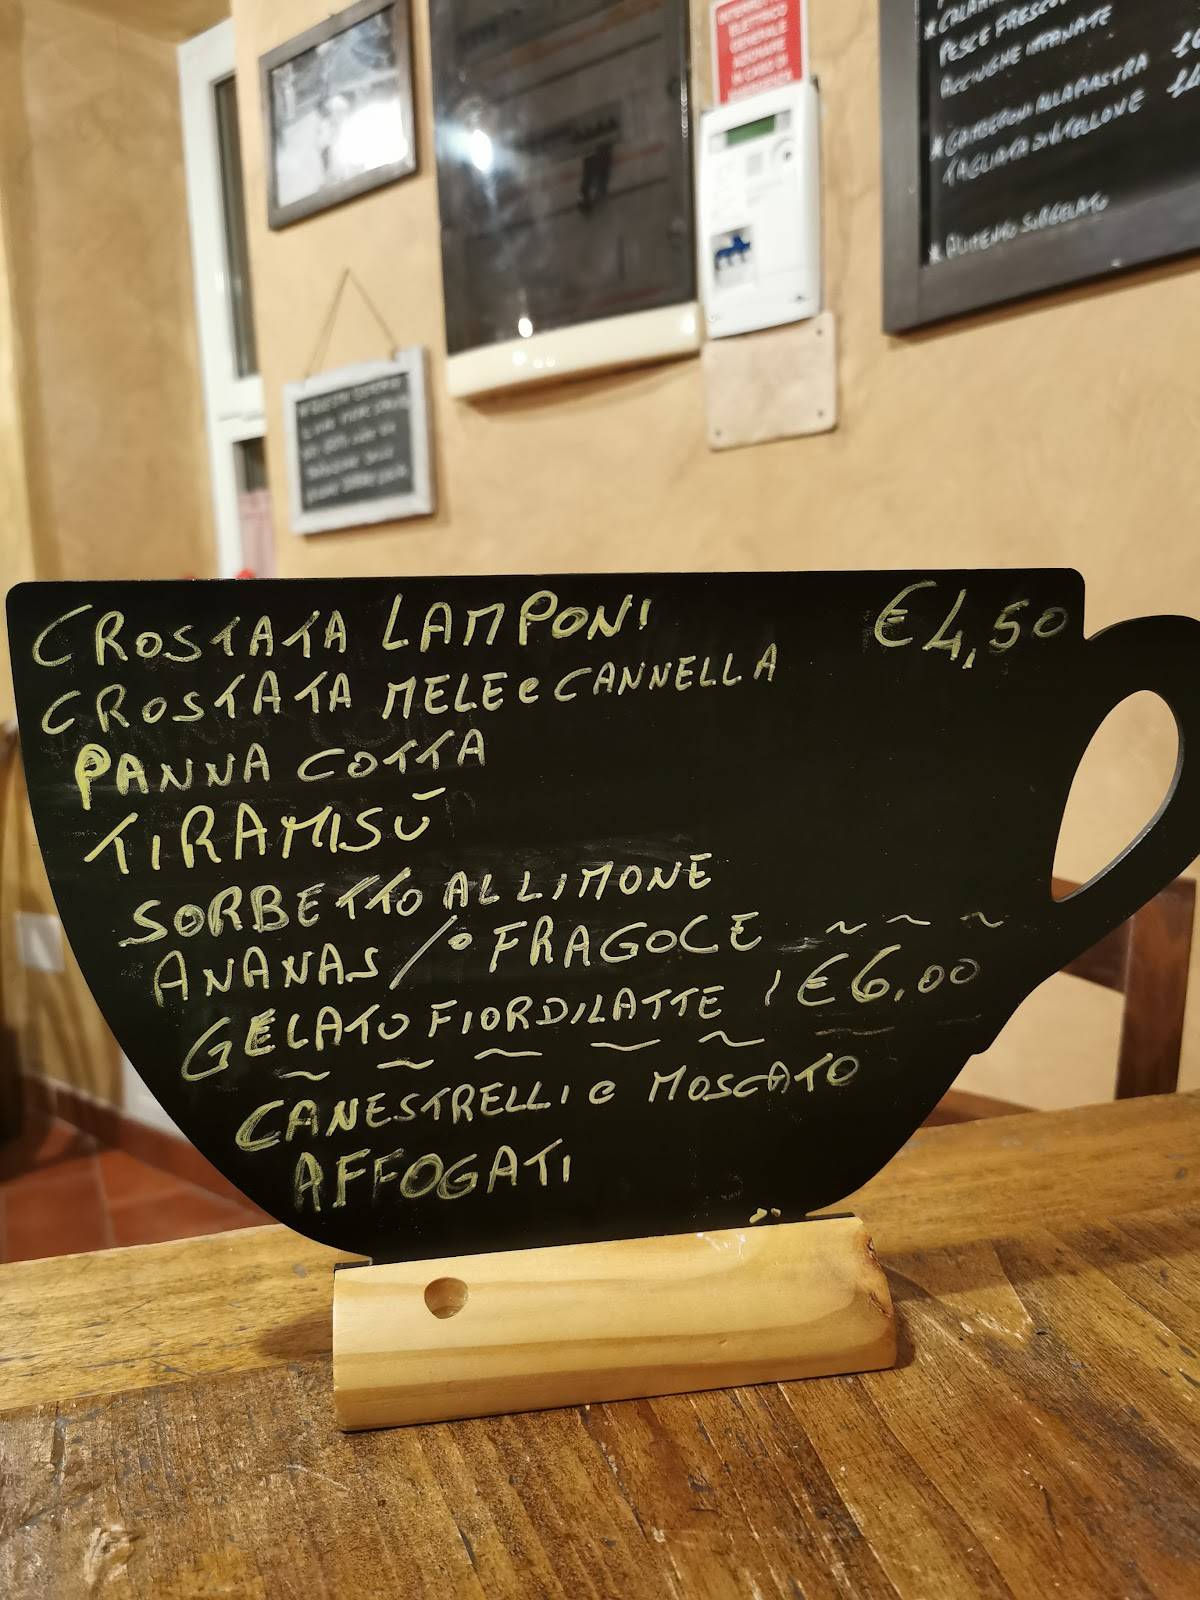 INTERRUTTORE
ELETTRICO
GENERALE
* CALAMARI
PESCE FRESCO
ACCIUGHE IMPANATE
* GAMBERONI ALLA PIASTRA
TAGLIATA DI VITELLONE
* ALIMENTO SURGELATO
CROSTATA LAMPONI €4,50
CROSTATA MELE e CANNELLA
PANNA COTTA
TIRAMISÙ
SORBETTO AL LIMONE
ANANAS / o FRAGOLE ~ ~ ~
GELATO FIORDILATTE / €6,00
~ ~ ~ ~ ~
CANESTRELLI e MOSCATO
AFFOGATI